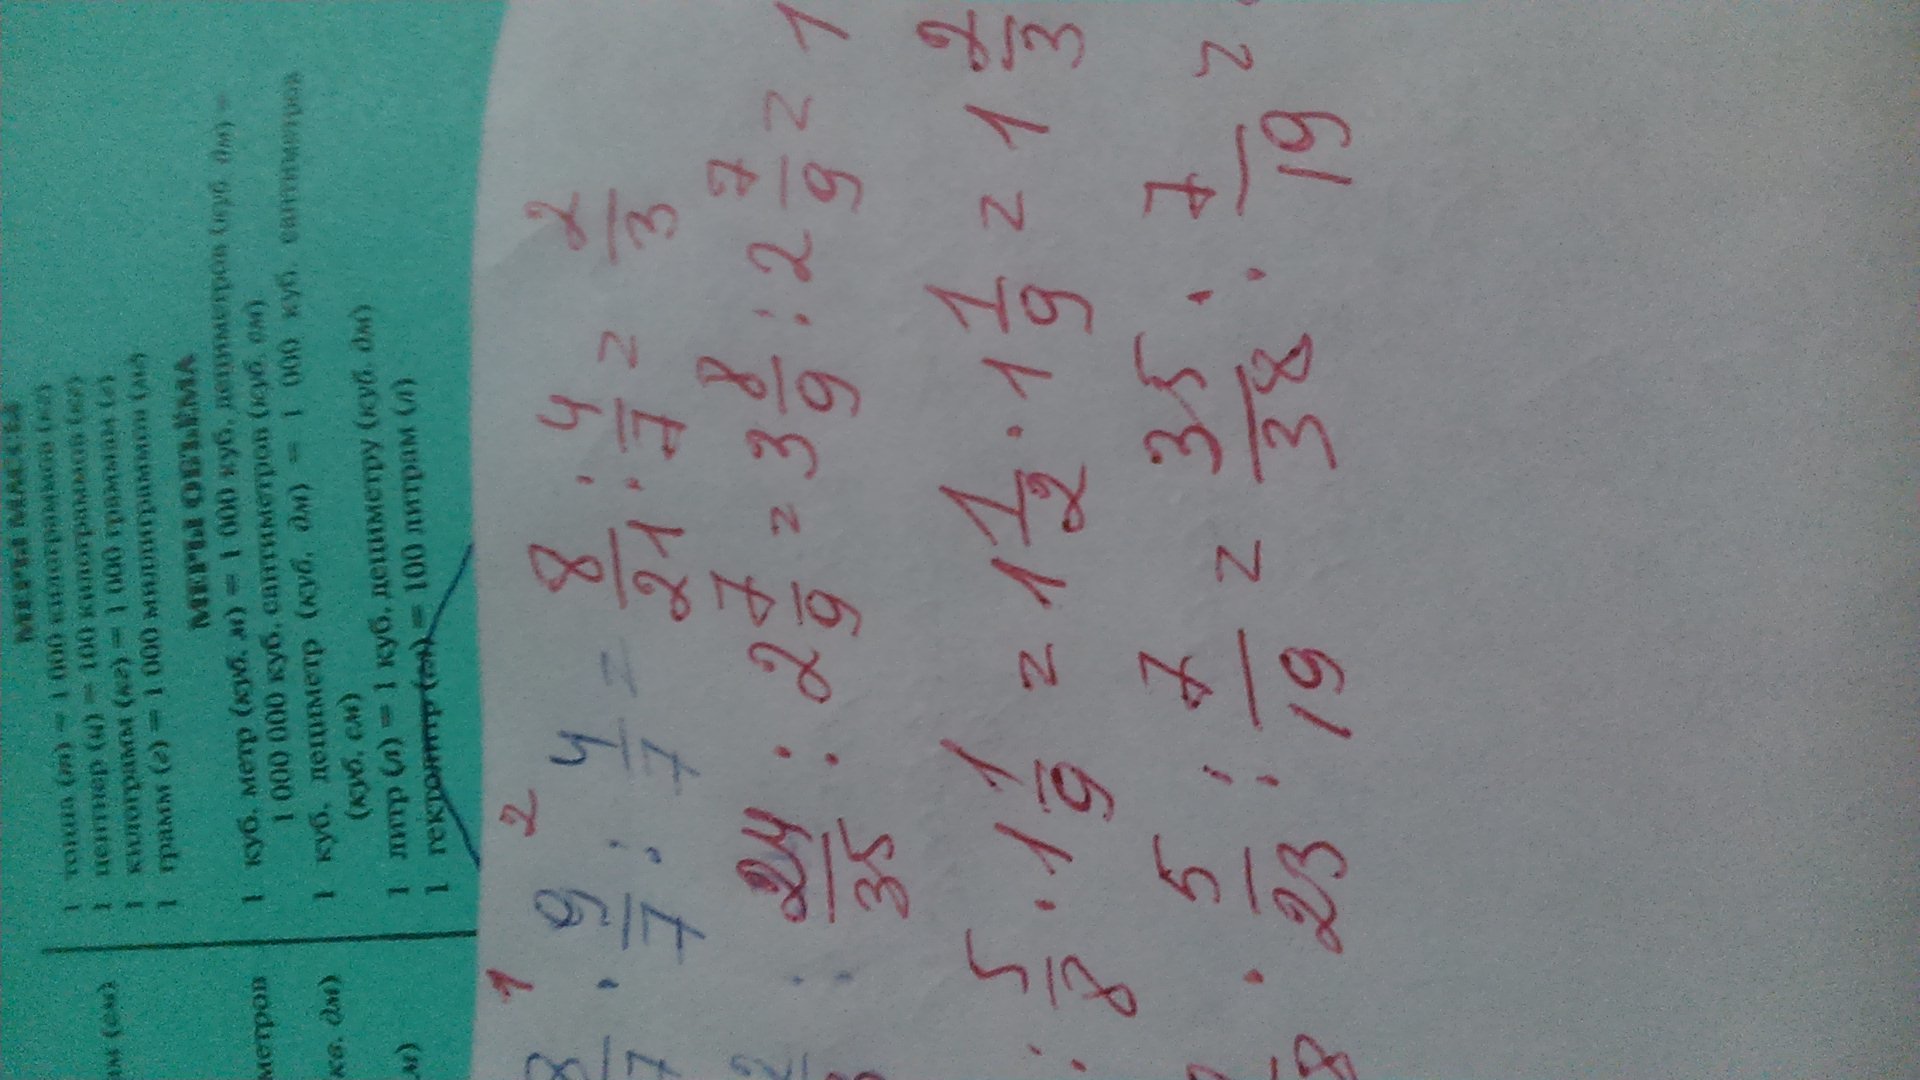 МЕРЫ МАССЫ
1 тонна (т) = 1 000 килограммов (кг)
1 центнер (ц) = 100 килограммов (кг)
1 килограмм (кг) = 1 000 граммам (г)
1 грамм (г) = 1 000 миллиграммам (мг)
МЕРЫ ОБЪЁМА
1 куб. метр (куб. м) = 1 000 куб. дециметров (куб. дм) =
1 000 000 куб. сантиметров (куб. см)
1 куб. дециметр (куб. дм) = 1 000 куб. сантиметров
(куб. см)
1 литр (л) = 1 куб. дециметру (куб. дм)
1 гектолитр (гл) = 100 литрам (л)
(см)
метров
кв. дм)
1 2
8/7 · 9/7 : 4/7 = 8/21 : 4/7 = 2/3
: 24/35 : 2 7/9 = 3 8/9 : 2 7/9 = 1
: 5/8 · 1 1/9 = 1 1/2 · 1 1/9 = 1 2/3
· 5/23 : 7/19 = 35/38 : 7/19 =